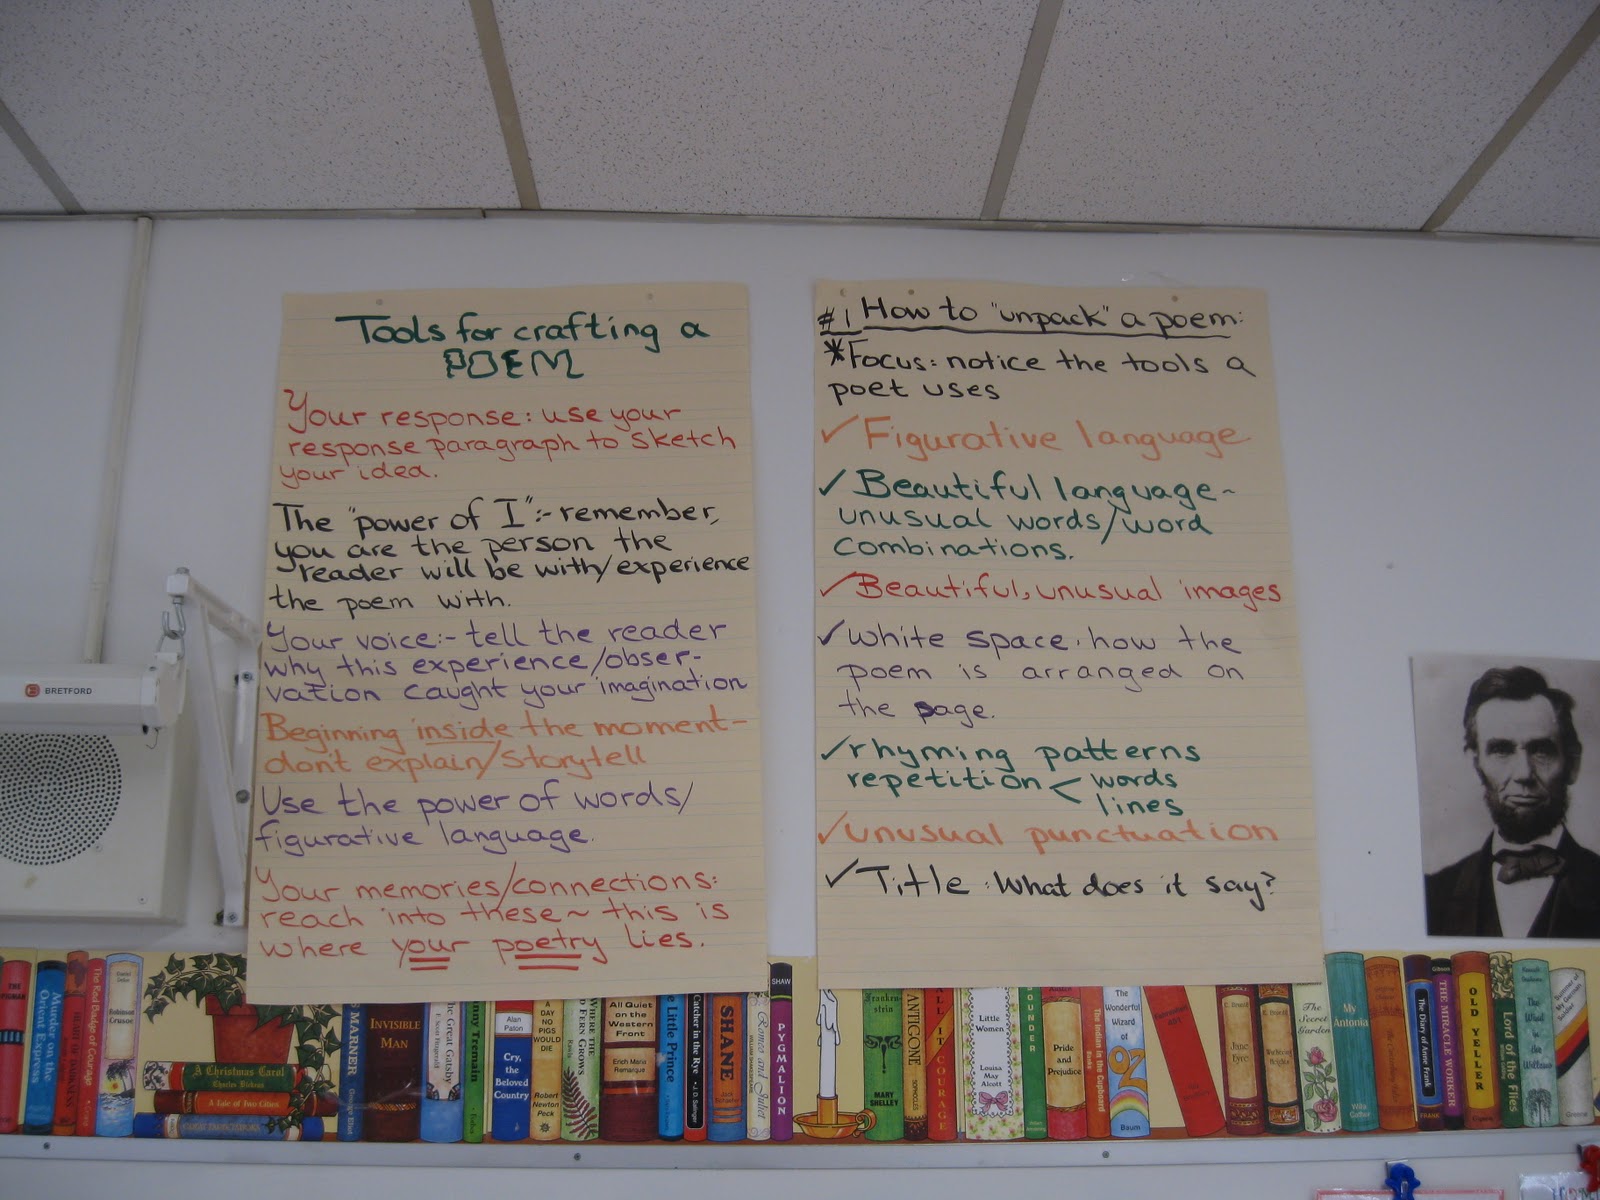 Tools for crafting a
POEM
Your response: use your
response paragraph to sketch
your idea.
The "power of I":- remember,
you are the person the
reader will be with/experience
the poem with.
Your voice:- tell the reader
why this experience/obser-
vation caught your imagination
Beginning inside the moment-
don't explain/storytell
Use the power of words/
figurative language.
Your memories/connections:
reach into these~ this is
where your poetry lies.
#1 How to "unpack" a poem:
*Focus: notice the tools a
poet uses
✓ Figurative language
✓ Beautiful language~
unusual words/word
combinations.
✓ Beautiful, unusual images
✓ white space. how the
poem is arranged on
the page.
✓ rhyming patterns
repetition < words
lines
✓ unusual punctuation
✓ Title: What does it say?
BRETFORD
Murder on the
Orient Express
The Red Badge of Courage
Robinson
Crusoe
A Christmas Carol
Charles Dickens
A Tale of Two Cities
MARNER
George Eliot
INVISIBLE
MAN
The Great Gatsby
Johnny Tremain
Alan
Paton
Cry,
the
Beloved
Country
A
DAY
NO PIGS
WOULD
DIE
Robert
Newton
Peck
WHERE THE
RED FERN
GROWS
All Quiet
on the
Western
Front
Erich Maria
Remarque
Little Prince
Catcher in the Rye
SHANE
Jack
Schaefer
Romeo and Juliet
SHAW
PYGMALION
Franken-
stein
MARY
SHELLEY
ANTIGONE
SOPHOCLES
CALL IT COURAGE
Little
Women
Louisa
May
Alcott
SOUNDER
Pride
and
Prejudice
The Indian in the Cupboard
The
Wonderful
Wizard
of
OZ
Baum
Jane
Eyre
Wuthering
Heights
The
Secret
Garden
My
Antonia
Willa
Cather
The Diary of Anne
Frank
FRANK
Gibson
THE MIRACLE WORKER
OLD
YELLER
Gipson
Lord of the flies
The
Wind
in the
Willows
Greene